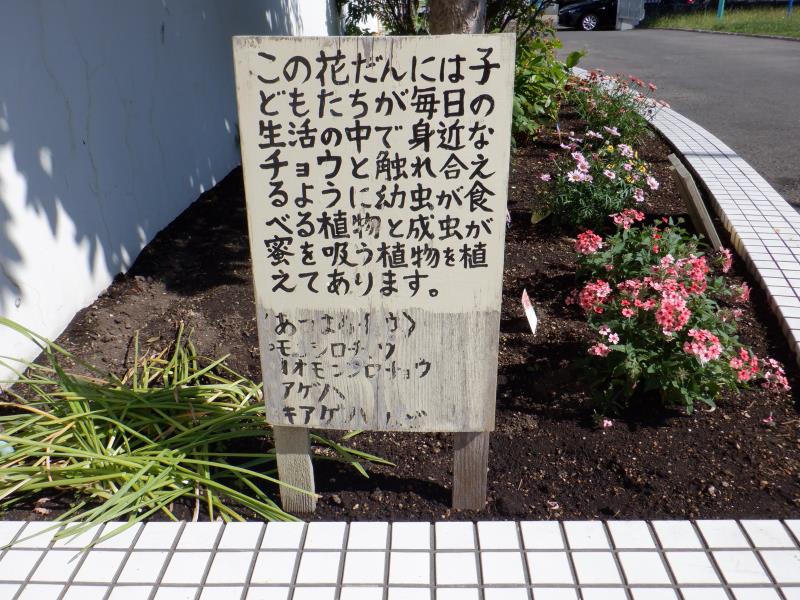 この花だんには子
どもたちが毎日の
生活の中で身近な
チョウと触れ合え
るように幼虫が食
べる植物と成虫が
蜜を吸う植物を植
えてあります。
モンシロチョウ
オオモンシロチョウ
アゲハ
キアゲハ